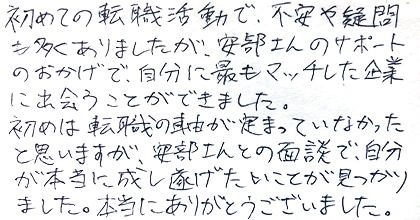 初めての転職活動で、不安や疑問
も多くありましたが、安部さんのサポート
のおかげで、自分に最もマッチした企業
に出会うことができました。
初めは転職の軸が定まっていなかった
と思いますが、安部さんとの面談で、自分
が本当に成し遂げたいことが見つかり
ました。本当にありがとうございました。